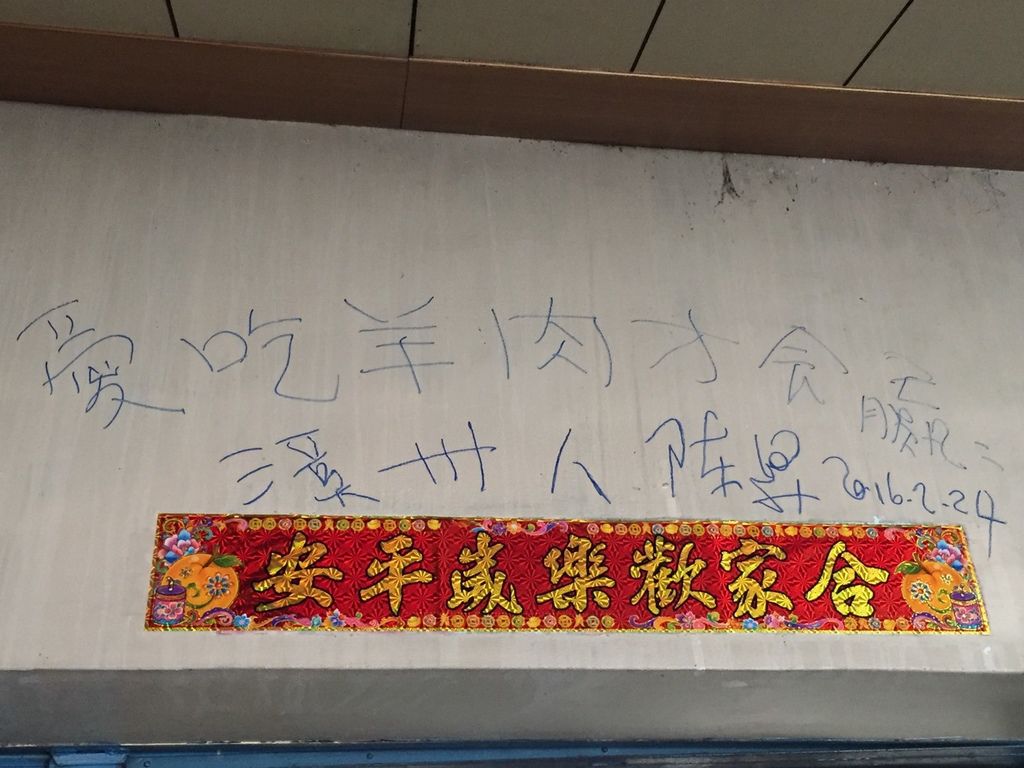 愛吃羊肉才会
溪州人陈昇 2016.2.24
合家歡樂歲平安